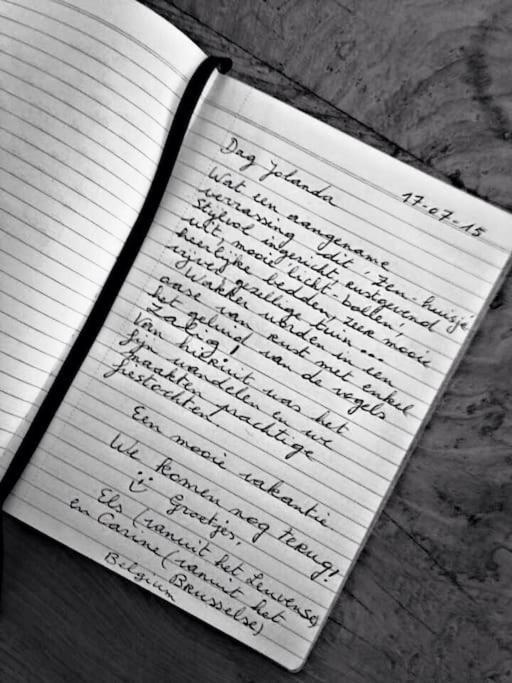 17-07-15
Dag Jolanda
Wat een aangename
verrassing dit 'zen-huisje'
stijlvol ingericht, rustgevend
wit, mooie licht-bollen!
heerlijke bedden, zeer mooie
vrije gezellige tuin...
Wakker worden in een
oase van rust met enkel
het geluid van de vogels
Zalig!
Van hieruit was het
fijn wandelen en we
maakten prachtige
fietstochten.
Een mooie vakantie
We komen nog terug!
Groetjes.
Els (vanuit het Leuvense)
en Carine (vanuit het
Brusselse)
Belgium